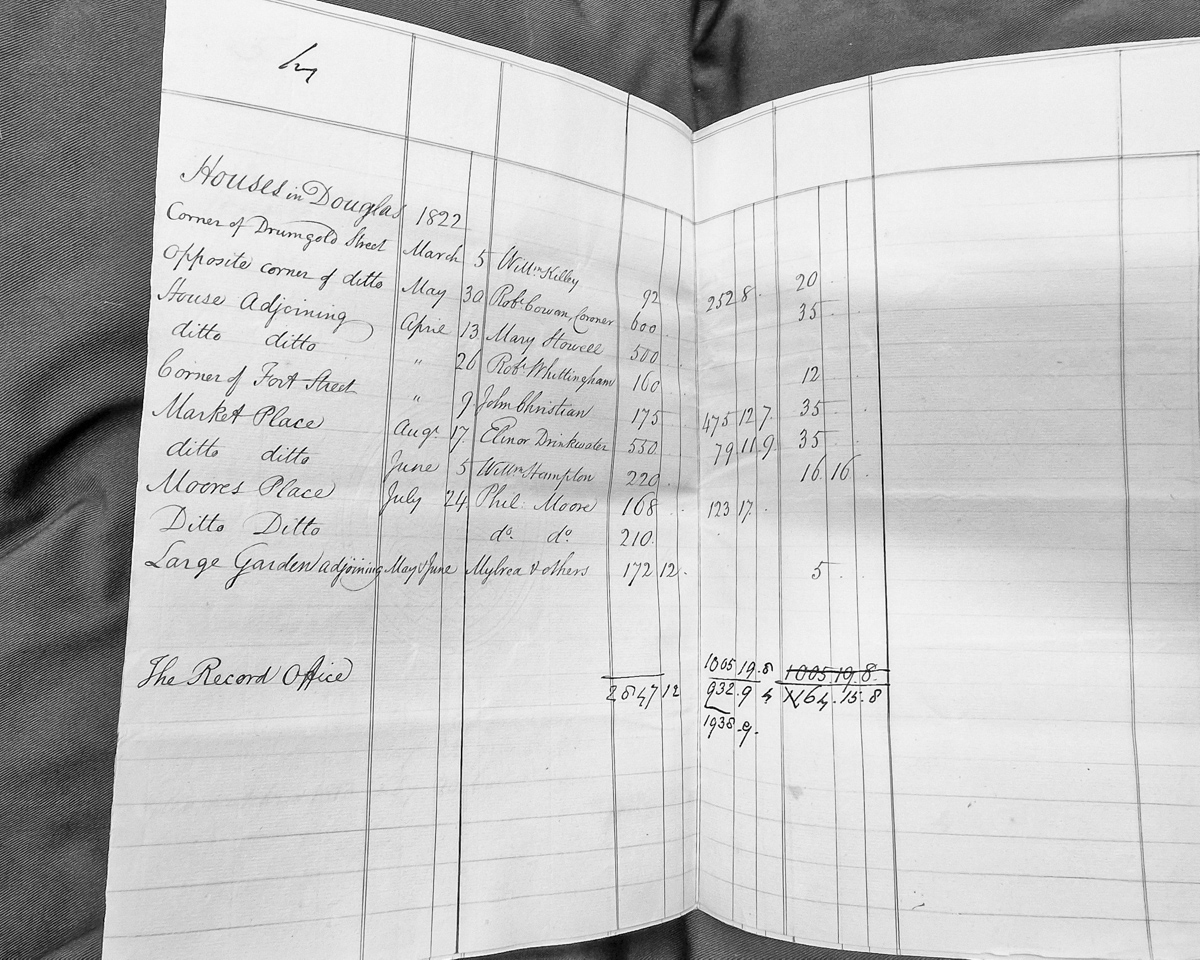 Houses in Douglas 1822
Corner of Drumgold Street March 5 Willm Killey 92 . . 252 8 . 20 . .
Opposite corner of ditto May 30 Robt Cowan, Coroner 600 . . 35 . .
House Adjoining April 13 Mary Stowell 500 . .
ditto ditto " 26 Robt Whittingham 160 . . 12 . .
Corner of Fort Street " 9 John Christian 175 . . 475 12 7 35 . .
Market Place Augt 17 Elinor Drinkwater 550 . . 79 11 9 35 . .
ditto ditto June 5 Willm Hampton 220 . . 16 16 .
Moores Place July 24 Phil: Moore 168 . . 123 17 .
Ditto Ditto do. do. 210
Large Garden adjoining May & June Mylrea & others 172 12 . 5 . .
The Record Office
1005 19 . 8 1005 . 19 . 8
2847 12 932 . 9 4 164 . 15 . 8
1938 . 9 .